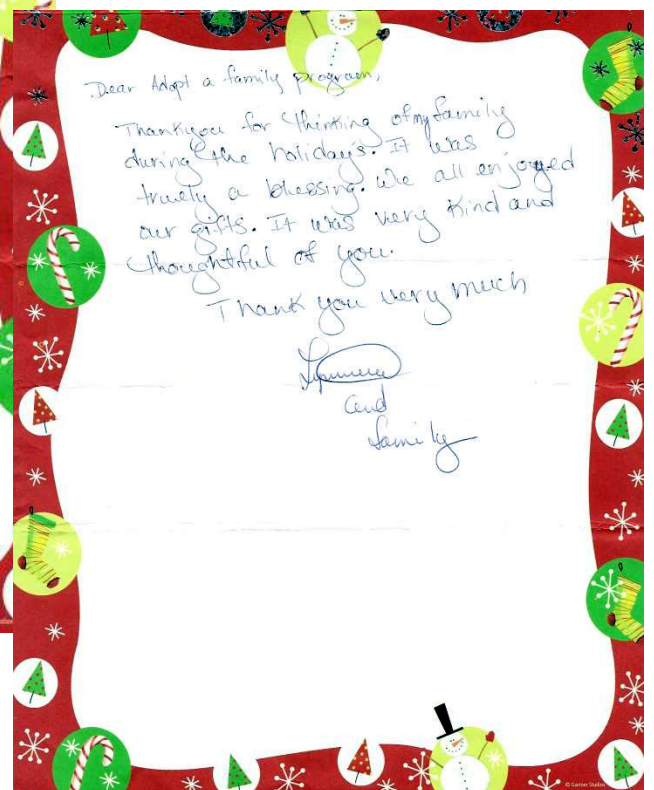 Dear Adopt a family program,
Thankyou for thinking of my family
during the holiday's. It was
truely a blessing. We all enjoyed
our gifts. It was very kind and
thoughtful of you.
Thank you very much
and
family
© Gartner Studios